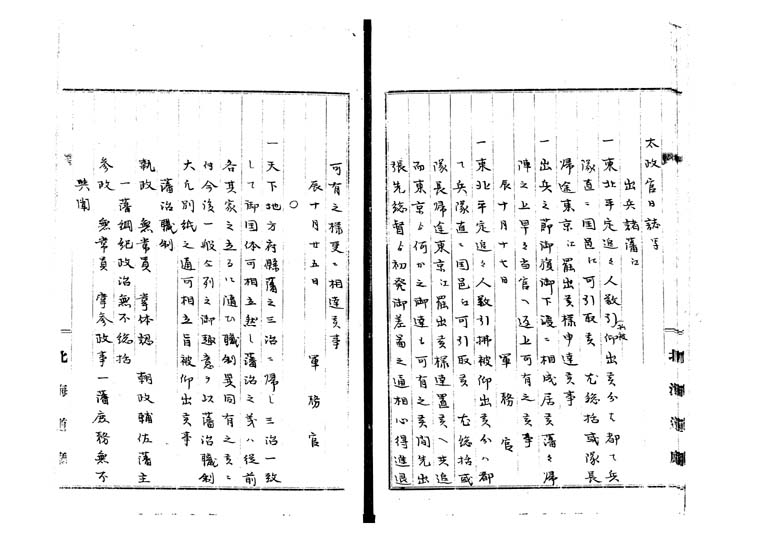 太政官日誌写
出兵諸藩江
一東北平定追々人数引払被仰出候分ハ都て兵
隊直ニ国邑江可引取候 尤総括或隊長
帰途東京江罷出候様申達候事
一出兵之節御旗御下渡ニ相成居候藩々帰
陣之上早々当官へ返上可有之候事
辰十月十七日 軍務官
一東北平定追々人数引払被仰出候分ハ都
て兵隊直ニ国邑江可引取候 尤総括或
隊長帰途東京江罷出候様達置候ヘ共追
而東京ゟ何分之御達も可有之候間先出
張先総督ゟ初発御差図之通相心得進退
可有之様更ニ相達候事
辰十月廿五日 軍務官
〇
一天下地方府縣藩之三治ニ帰し三治一致
して御国体可相立然し藩治之儀ハ従前
各其家之立るニ随ひ職制区々異同有之候ニ
付今後一般同列之御趣意ヲ以藩治職制
大凡別紙之通可相立旨被仰出候事
藩治職制
執政 無常員 掌体認 朝政輔佐藩主
一藩綱紀政治無不総括
参政 無常員 掌参政事一藩庶務無不
與聞
北海道庁
北海道庁